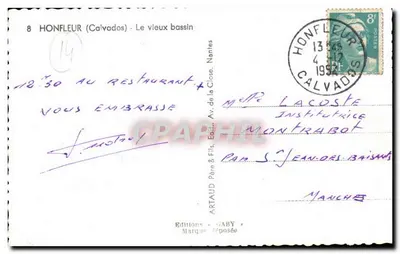 8 HONFLEUR (Calvados) - Le vieux bassin
14
12H30 AU RESTAURANT +
VOUS EMBRASSE
ARTAUD Père & Fils, Edit., Av. de la Close, Nantes
Editions "GABY"
Marque déposée
HONFLEUR
13H45
4-12
1952
CALVADOS
8F
POSTES
LACOSTE
INSTITUTRICE
MONTRABOT
PAR ST JEAN-DES-BAISANTS
MANCHE